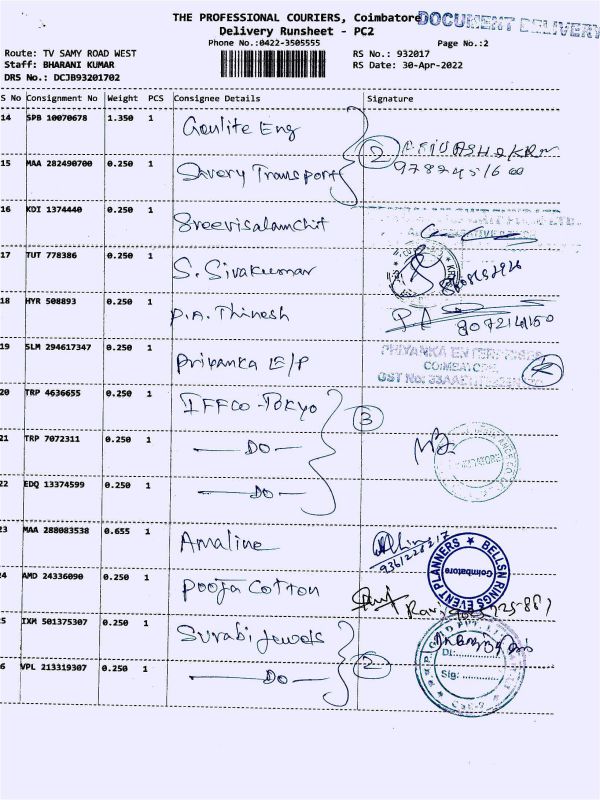 THE PROFESSIONAL COURIERS, Coimbatore
DOCUMENT DELIVERY
Delivery Runsheet - PC2
Phone No.:0422-3505555
Page No.:2
Route: TV SAMY ROAD WEST
RS No.: 932017
Staff: BHARANI KUMAR
RS Date: 30-Apr-2022
DRS No.: DCJB93201702
S No Consignment No Weight PCS Consignee Details Signature
14 SPB 10070678 1.350 1 Goulite Eng
15 MAA 282490700 0.250 1 Savery Transport
2
16 KDI 1374440 0.250 1 Sreevisalamchit
17 TUT 778386 0.250 1 S. Sivakumar
18 HYR 508893 0.250 1 P.A. Thinesh
PA
19 SLM 294617347 0.250 1 Priyanka E/P
PRIYANKA ENTERPRISES
COIMBATORE
GST No:
20 TRP 4636655 0.250 1 IFFCO-TOKYO
3
21 TRP 7072311 0.250 1 — DO —
22 EDQ 13374599 0.250 1 — DO —
23 MAA 288083538 0.655 1 Amaline
BELLSN RINGS EVENT PLANNERS
Coimbatore
24 AMD 24336090 0.250 1 Pooja Cotton
25 IXM 501375307 0.250 1 Surabi Jewels
Dt:
26 VPL 213319307 0.250 1 — DO —
2
Sig: